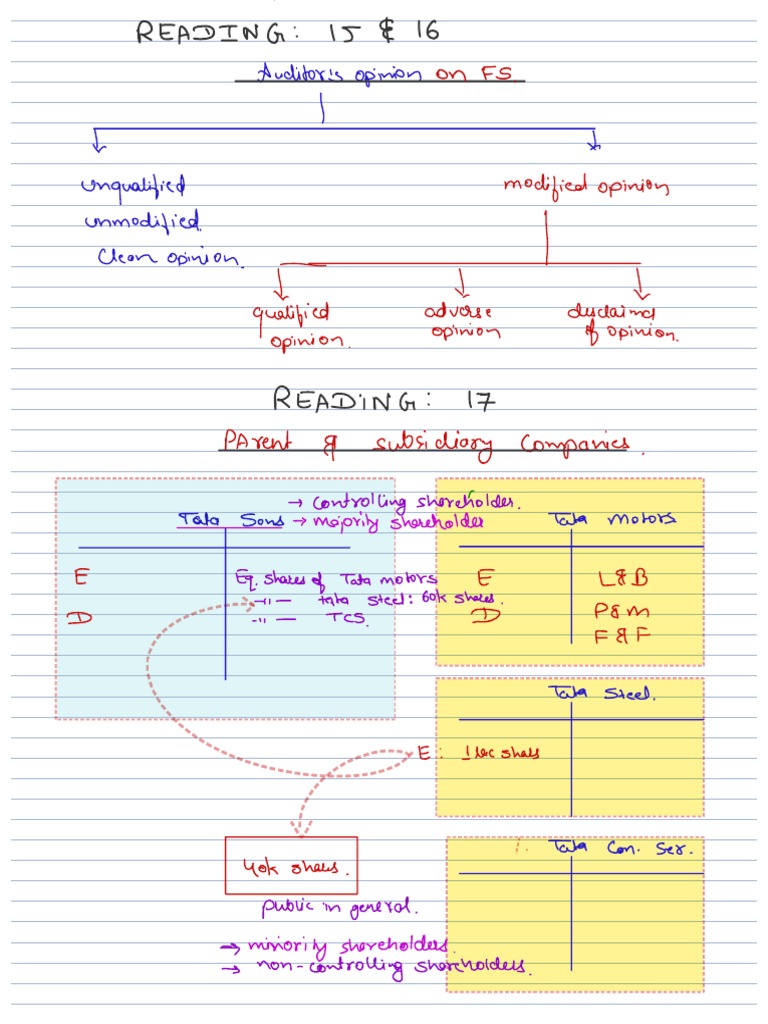 READING: 15 & 16
Auditor's opinion on FS
unqualified
unmodified.
Clean opinion.
modified opinion
qualified
opinion.
adverse
opinion
disclaimer
of opinion.
READING: 17
PArent & subsidiary companies.
→ controlling shareholder.
Tata Sons → majority shareholder
E
D
Eq. shares of Tata motors
-"- tata steel: 60k shares.
-"- TCS.
Tata motors
E L&B
D P&M
F&F
Tata Steel.
E: 1 lac shares
40k shares.
public in general.
→ minority shareholders.
→ non-controlling shareholders.
Tata Con. Ser.